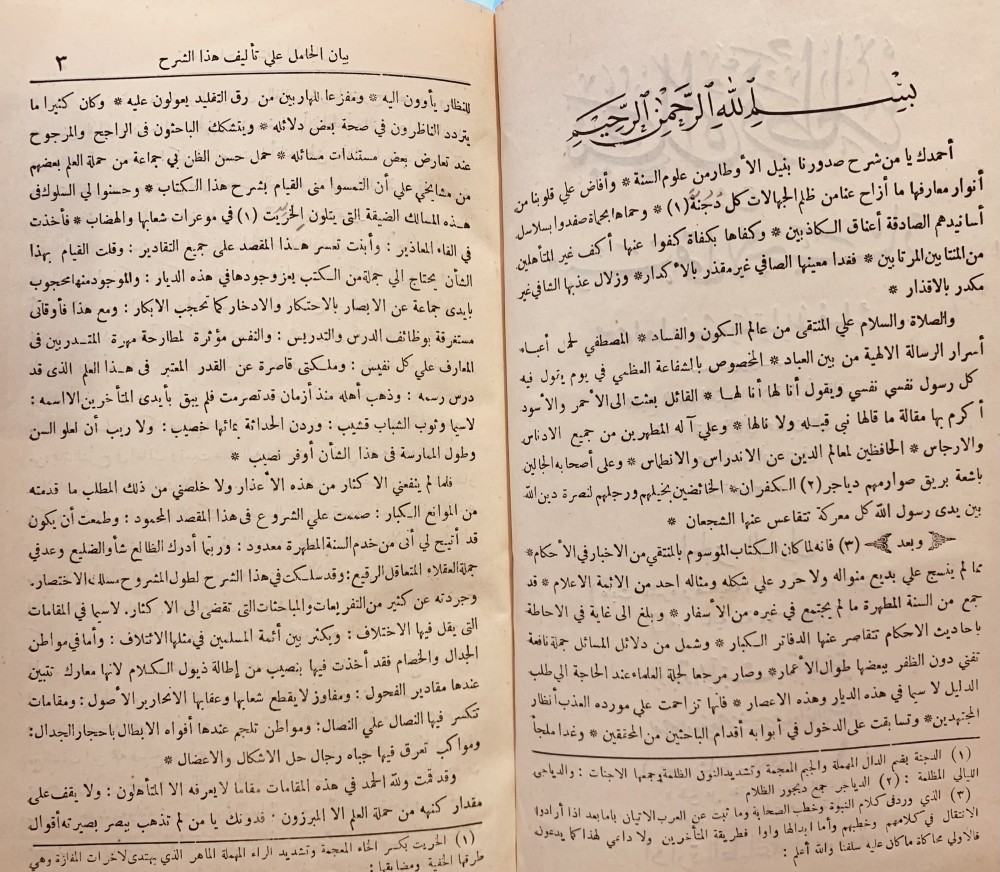 بسم الله الرحمن الرحيم
أحمدك يا من شرح صدورنا بنيل الأوطار من علوم السنة * وأفاض علي قلوبنا من
أنوار معارفها ما أزاح عنا من ظلم الجهالات كل دُجُنَّة (١) * وحماها بحماة صفدوا بسلاسل
أسانيدهم الصادقة أعناق الكذابين * وكفاها بكفاة كفوا عنها أكف غير المتأهلين
من المنتابين المرتابين * فغدا معينها الصافي غير مقذر بالأكدار * وزلال عذبها الشافي غير
مكدر بالاقذار *
والصلاة والسلام علي المنتقى من عالم الكون والفساد * المصطفي لحمل أعباء
أسرار الرسالة الالهية من بين العباد * المخصوص بالشفاعة العظمي في يوم يقول فيه
كل رسول نفسي نفسي ويقول أنا لها أنا لها * القائل بعثت الى الأحمر والأسود
أكرم بها مقالة ما قالها نبي قبله ولا نالها * وعلي آله المطهرين من جميع الادناس
والارجاس * الحافظين لمعالم الدين عن الاندراس والانطماس * وعلى أصحابه الجالين
باشعة بريق صوارمهم دياجر (٢) الكفران * الخائضين بخيلهم ورجلهم لنصرة دين الله
بين يدى رسول الله كل معركة تتقاعس عنها الشجعان *
وبعد (٣) فانه لما كان الكتاب الموسوم بالمنتقي من الاخبار في الأحكام *
مما لم ينسج علي بديع منواله ولا حرر علي شكله ومثاله احد من الائمة الاعلام * قد
جمع من السنة المطهرة ما لم يجتمع في غيره من الأسفار * وبلغ الى غاية في الاحاطة
باحاديث الاحكام تتقاصر عنها الدفاتر الكبار * وشمل من دلائل المسائل جملة نافعة
تفني دون الظفر ببعضها طوال الأعمار * وصار مرجعا لجلة العلماء عند الحاجة الي طلب
الدليل لا سيما في هذه الديار وهذه الاعصار * فانها تزاحمت علي مورده العذب أنظار
المجتهدين * وتسابقت على الدخول في أبوابه أقدام الباحثين من المحققين * وغدا ملجأ
(١) الدجنة بضم الدال المهملة والجيم المعجمة وتشديد النون الظلمة وجمعها الاجنات : والدياجى
الليالي المظلمة : (٢) الدياجر جمع ديجور الظلام
(٣) الذي ورد في كلام النبوة وخطب الصحابة وما ثبت عن العرب الاتيان باما بعد اذا أرادوا
الانتقال في كلامهم وخطبهم وأما ابدالها واوا فطريقة المتأخرين ولا داعي لهذا كما يدعون
فالاولي محاكاة ما كان عليه سلفنا والله أعلم :
بيان الحامل علي تأليف هذا الشرح ٣
للنظار يأوون اليه * ومفزعا للهاربين من رق التقليد يعولون عليه * وكان كثيرا ما
يتردد الناظرون في صحة بعض دلائله * ويتشكك الباحثون في الراجح والمرجوح
عند تعارض بعض مستندات مسائله * حمل حسن الظن بي جماعة من حملة العلم بعضهم
من مشايخي علي أن التمسوا مني القيام بشرح هذا الكتاب * وحسنوا لي السلوك في
هذه المسالك الضيقة التى يتلون الخريت (١) في موعرات شعابها والهضاب * فأخذت
في القاء المعاذير : وأبنت تعسر هذا المقصد على جميع التقادير : وقلت القيام بهذا
الشأن يحتاج الي جملة من الكتب يعز وجودها في هذه الديار : والموجود منها محجوب
بايدى جماعة عن الابصار بالاحتكار والادخار كما تحجب الابكار : ومع هذا فأوقاتى
مستغرقة بوظائف الدرس والتدريس : والنفس مؤثرة لمطارحة مهرة المتدربين فى
المعارف علي كل نفيس : وملكتى قاصرة عن القدر المعتبر فى هذا العلم الذى قد
درس رسمه : وذهب أهله منذ أزمان قد تصرمت فلم يبق بأيدى المتأخرين الا اسمه :
لاسيما وثوب الشباب قشيب : وردن الحداثة بمائها خصيب : ولا ريب أن لعلو السن
وطول الممارسة فى هذا الشأن أوفر نصيب *
فلما لم ينفعني الاكثار من هذه الأعذار ولا خلصني من ذلك المطلب ما قدمته
من الموانع الكبار : صممت علي الشروع فى هذا المقصد المحمود : وطمعت أن يكون
قد أتيح لي أنى من خدم السنة المطهرة معدود : وربما أدرك الظالع شأو الضليع وعد في
جملة العقلاء المتعاقل الرقيع : وقد سلكت في هذا الشرح لطول المشروح مسلك الاختصار.
وجردته عن كثير من التفريعات والمباحثات التى تقضى الى الاكثار. لاسيما في المقامات
التى يقل فيها الاختلاف : ويكثر بين أئمة المسلمين في مثلها الائتلاف : وأما في مواطن
الجدال والخصام فقد أخذت فيها بنصيب من إطالة ذيول الكلام لانها معارك تتبين
عندها مقادير الفحول : ومفاوز لا يقطع شعابها وعقابها الا نحارير الأصول : ومقامات
تتكسر فيها النصال علي النصال : ومواطن تلجم عندها أفواه الابطال باحجار الجدال :
ومواكب تعرق فيها جباه رجال حل الاشكال والاعضال *
وقد قمت ولله الحمد في هذه المقامات مقاما لا يعرفه الا المتأهلون : ولا يقف على
مقدار كنهه من حملة العلم الا المبرزون . فدونك يا من لم تذهب ببصر بصيرته أقوال
(١) الخريت بكسر الخاء المعجمة وتشديد الراء المهملة الماهر الذي يهتدى لاخرات المفازة وهي
طرقها الخفية ومضايقها :